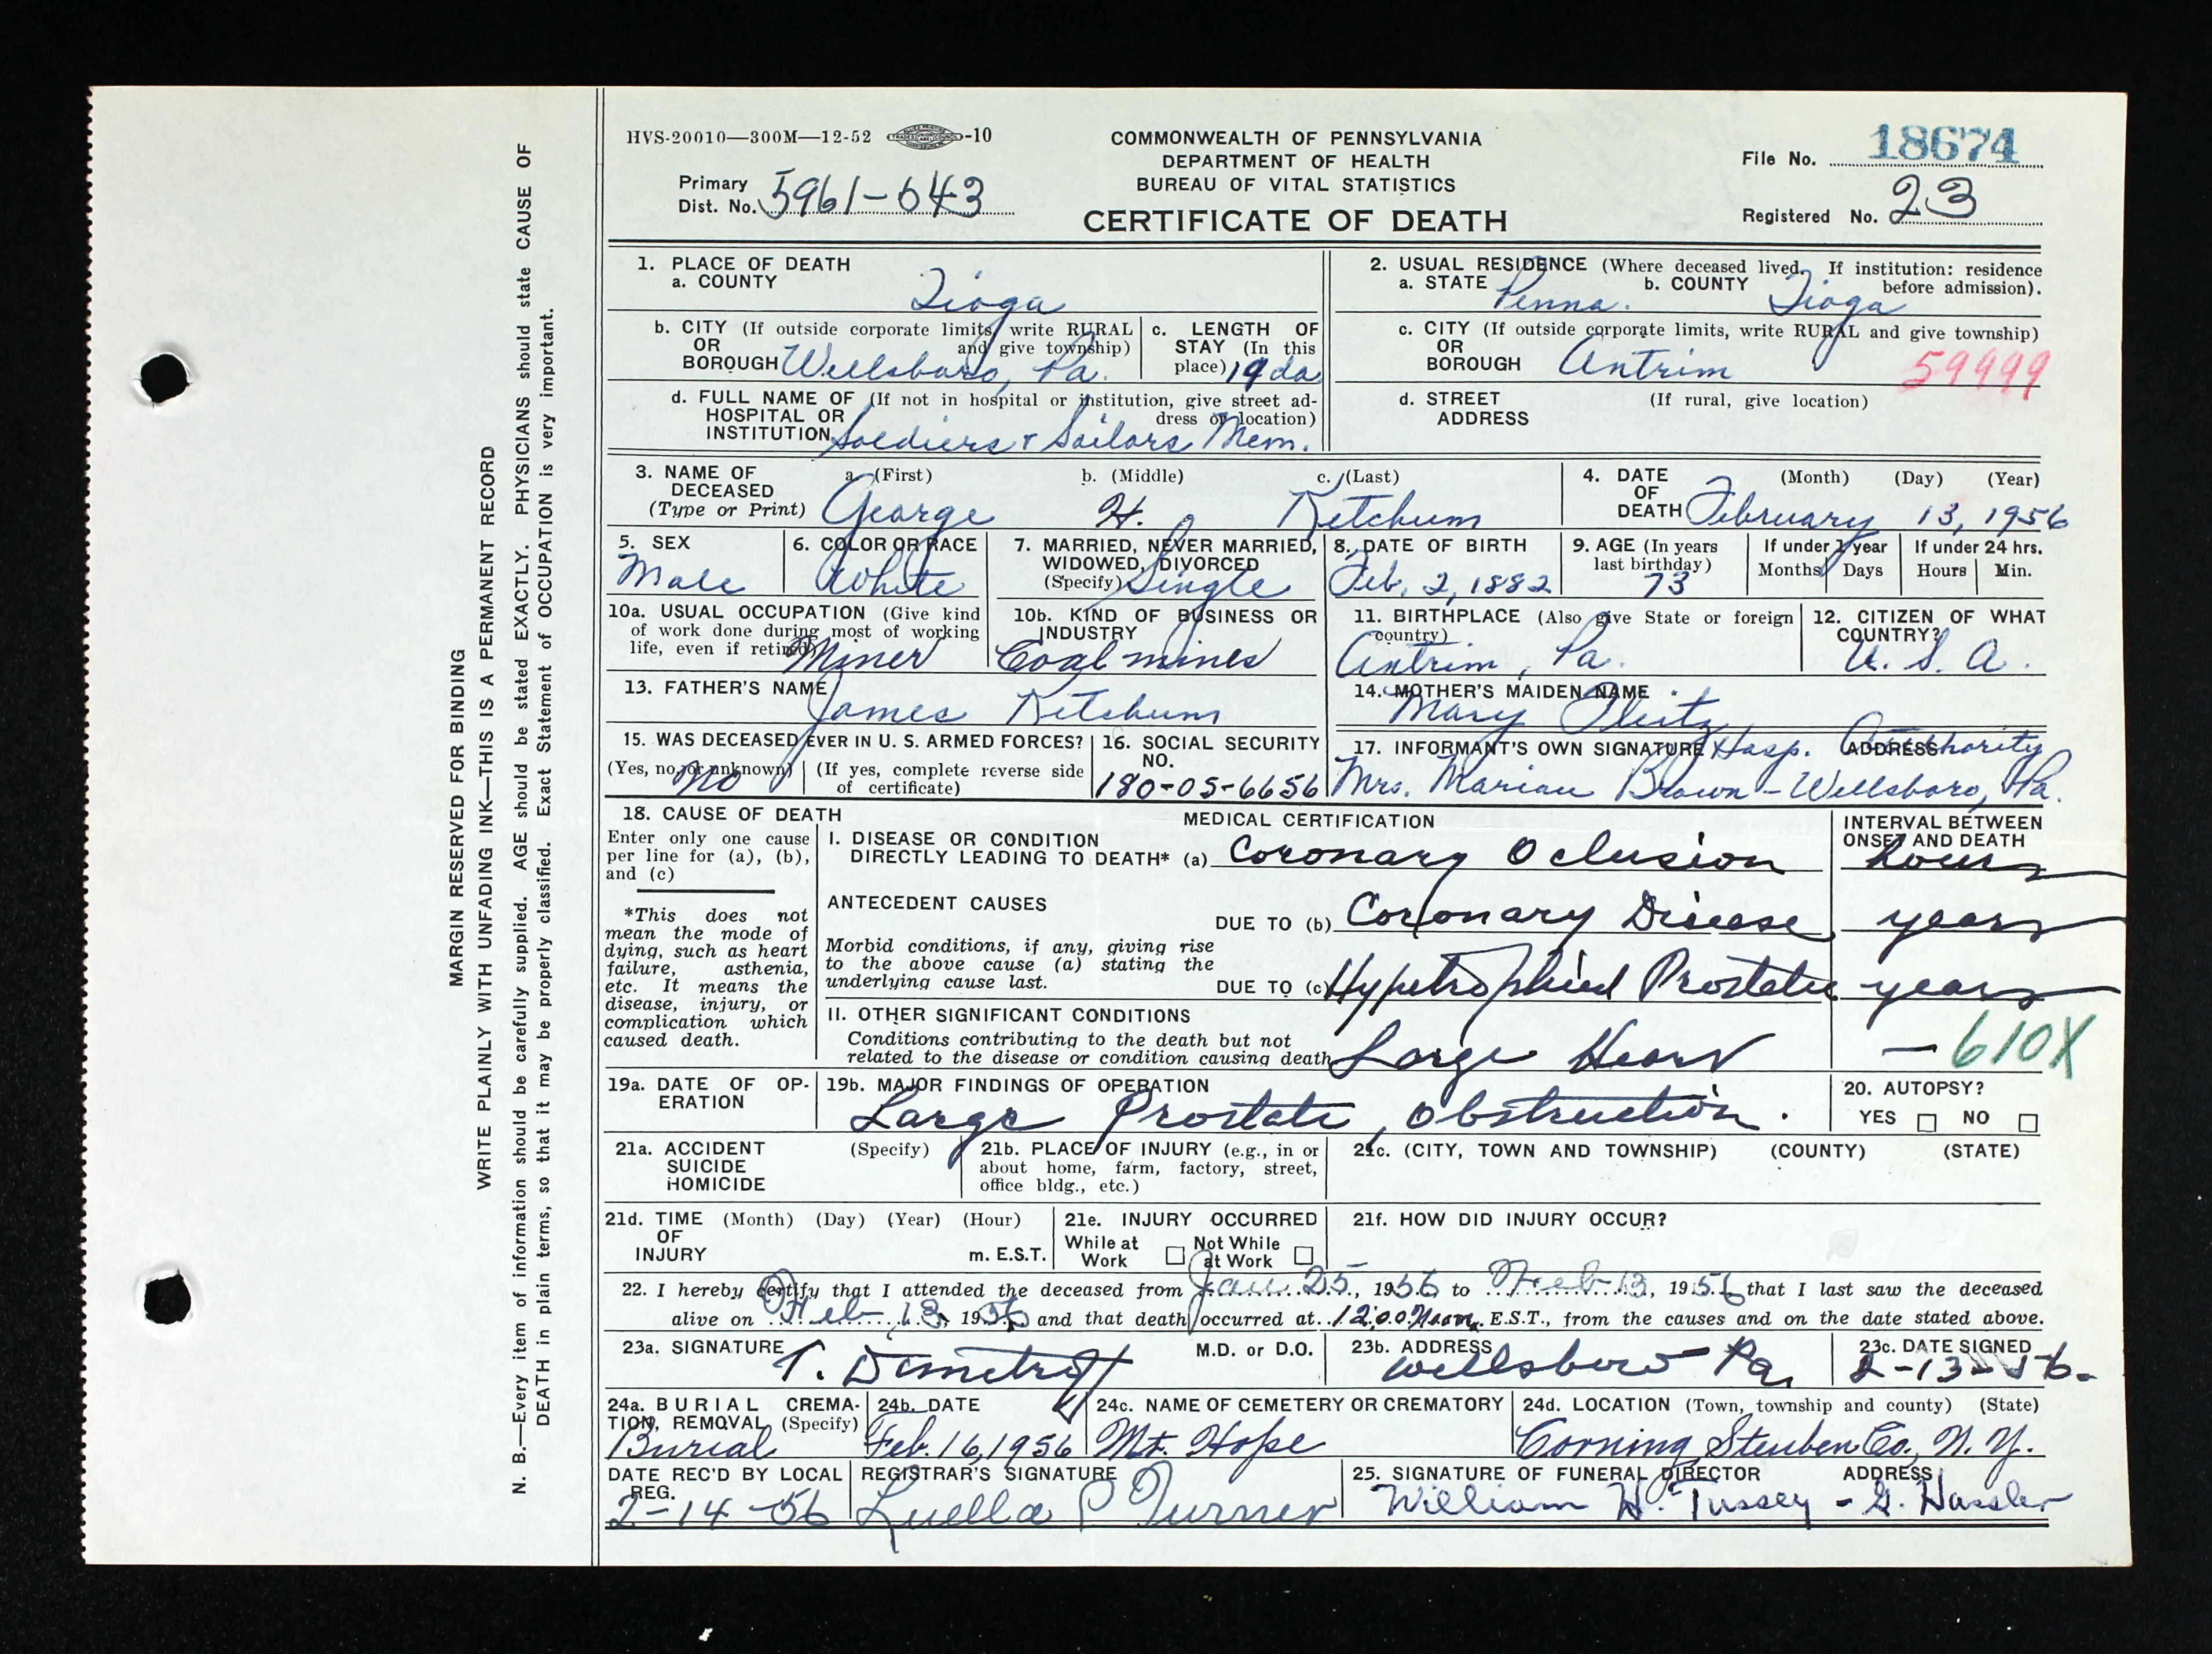 MARGIN RESERVED FOR BINDING
WRITE PLAINLY WITH UNFADING INK—THIS IS A PERMANENT RECORD
N. B.—Every item of information should be carefully supplied. AGE should be stated EXACTLY. PHYSICIANS should state CAUSE OF
DEATH in plain terms, so that it may be properly classified. Exact Statement of OCCUPATION is very important.
HVS-20010—300M—12-52 -10
COMMONWEALTH OF PENNSYLVANIA
DEPARTMENT OF HEALTH
BUREAU OF VITAL STATISTICS
CERTIFICATE OF DEATH
Primary
Dist. No. 5961-643
File No. 18674
Registered No. 23
1. PLACE OF DEATH
a. COUNTY Tioga
2. USUAL RESIDENCE (Where deceased lived. If institution: residence
before admission).
a. STATE Penna. b. COUNTY Tioga
b. CITY (If outside corporate limits, write RURAL
OR and give township)
BOROUGH Wellsboro, Pa.
c. LENGTH OF
STAY (In this
place) 19 da
c. CITY (If outside corporate limits, write RURAL and give township)
OR
BOROUGH Antrim 59999
d. FULL NAME OF (If not in hospital or institution, give street ad-
HOSPITAL OR dress or location)
INSTITUTION Soldiers & Sailors Mem.
d. STREET (If rural, give location)
ADDRESS
3. NAME OF a. (First) b. (Middle) c. (Last)
DECEASED
(Type or Print) George H. Ketchum
4. DATE (Month) (Day) (Year)
OF
DEATH February 13, 1956
5. SEX
Male
6. COLOR OR RACE
White
7. MARRIED, NEVER MARRIED,
WIDOWED, DIVORCED
(Specify) Single
8. DATE OF BIRTH
Feb. 2, 1882
9. AGE (In years
last birthday)
73
If under 1 year
Months Days
If under 24 hrs.
Hours Min.
10a. USUAL OCCUPATION (Give kind
of work done during most of working
life, even if retired) Miner
10b. KIND OF BUSINESS OR
INDUSTRY
Coal mines
11. BIRTHPLACE (Also give State or foreign
country)
Antrim, Pa.
12. CITIZEN OF WHAT
COUNTRY?
U. S. A.
13. FATHER'S NAME
James Ketchum
14. MOTHER'S MAIDEN NAME
Mary
15. WAS DECEASED EVER IN U. S. ARMED FORCES?
(Yes, no, or unknown) (If yes, complete reverse side
of certificate)
No
16. SOCIAL SECURITY
NO.
180-05-6656
17. INFORMANT'S OWN SIGNATURE ADDRESS
Hosp. Authority
Mrs. Marian Brown - Wellsboro, Pa.
18. CAUSE OF DEATH
Enter only one cause
per line for (a), (b),
and (c)
*This does not
mean the mode of
dying, such as heart
failure, asthenia,
etc. It means the
disease, injury, or
complication which
caused death.
MEDICAL CERTIFICATION
INTERVAL BETWEEN
ONSET AND DEATH
I. DISEASE OR CONDITION
DIRECTLY LEADING TO DEATH* (a) Coronary Oclusion hours
ANTECEDENT CAUSES
DUE TO (b) Coronary Disease years
Morbid conditions, if any, giving rise
to the above cause (a) stating the
underlying cause last.
DUE TO (c) Prostate years
II. OTHER SIGNIFICANT CONDITIONS
Conditions contributing to the death but not
related to the disease or condition causing death
Large Heart — 610X
19a. DATE OF OP-
ERATION
19b. MAJOR FINDINGS OF OPERATION
Large Prostate, Obstruction.
20. AUTOPSY?
YES NO
21a. ACCIDENT (Specify)
SUICIDE
HOMICIDE
21b. PLACE OF INJURY (e.g., in or
about home, farm, factory, street,
office bldg., etc.)
21c. (CITY, TOWN AND TOWNSHIP) (COUNTY) (STATE)
21d. TIME (Month) (Day) (Year) (Hour)
OF
INJURY m. E.S.T.
21e. INJURY OCCURRED
While at Not While
Work at Work
21f. HOW DID INJURY OCCUR?
22. I hereby certify that I attended the deceased from Jan 25, 1956 to Feb 13, 1956 that I last saw the deceased
alive on Feb 13, 1956 and that death occurred at 12:00 Noon m. E.S.T., from the causes and on the date stated above.
23a. SIGNATURE M.D. or D.O.
23b. ADDRESS
Wellsboro Pa.
23c. DATE SIGNED
2-13-56.
24a. BURIAL CREMA-
TION, REMOVAL (Specify)
Burial
24b. DATE
Feb. 16, 1956
24c. NAME OF CEMETERY OR CREMATORY
Mt. Hope
24d. LOCATION (Town, township and county) (State)
Corning, Steuben Co., N. Y.
DATE REC'D BY LOCAL
REG.
2-14-56
REGISTRAR'S SIGNATURE
Luella P Turner
25. SIGNATURE OF FUNERAL DIRECTOR ADDRESS
William H. Tussey - G. Hassler